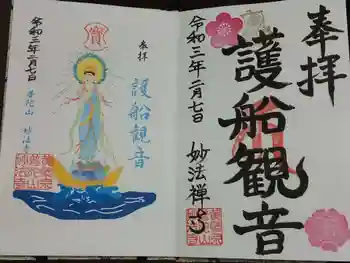 奉拝
護船観音
令和三年二月七日
妙法禅寺
奉拝
護船観音
令和三年二月七日
普陀山 妙法寺